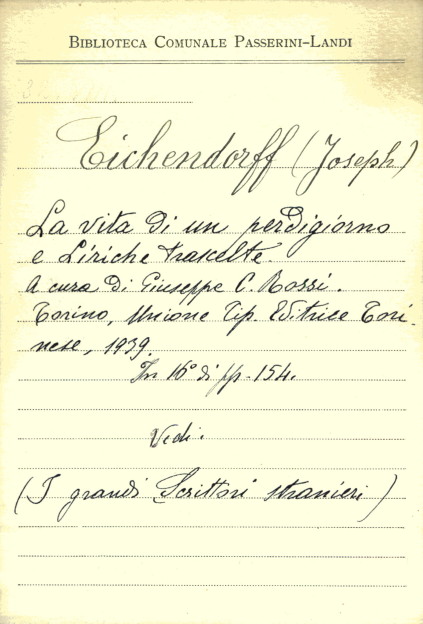 BIBLIOTECA COMUNALE PASSERINI-LANDI
Eichendorff (Joseph)
La vita di un perdigiorno
e Liriche trascelte.
A cura di Giuseppe C. Rossi.
Torino, Unione Tip. Editrice Tori-
nese, 1939.
In 16° di pp. 154.
Vedi.
(I grandi Scrittori stranieri)